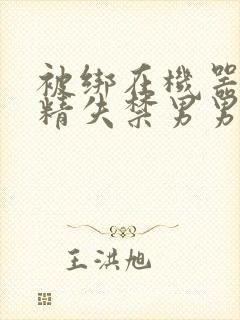 被绑在機器
精失禁男男
王洪旭